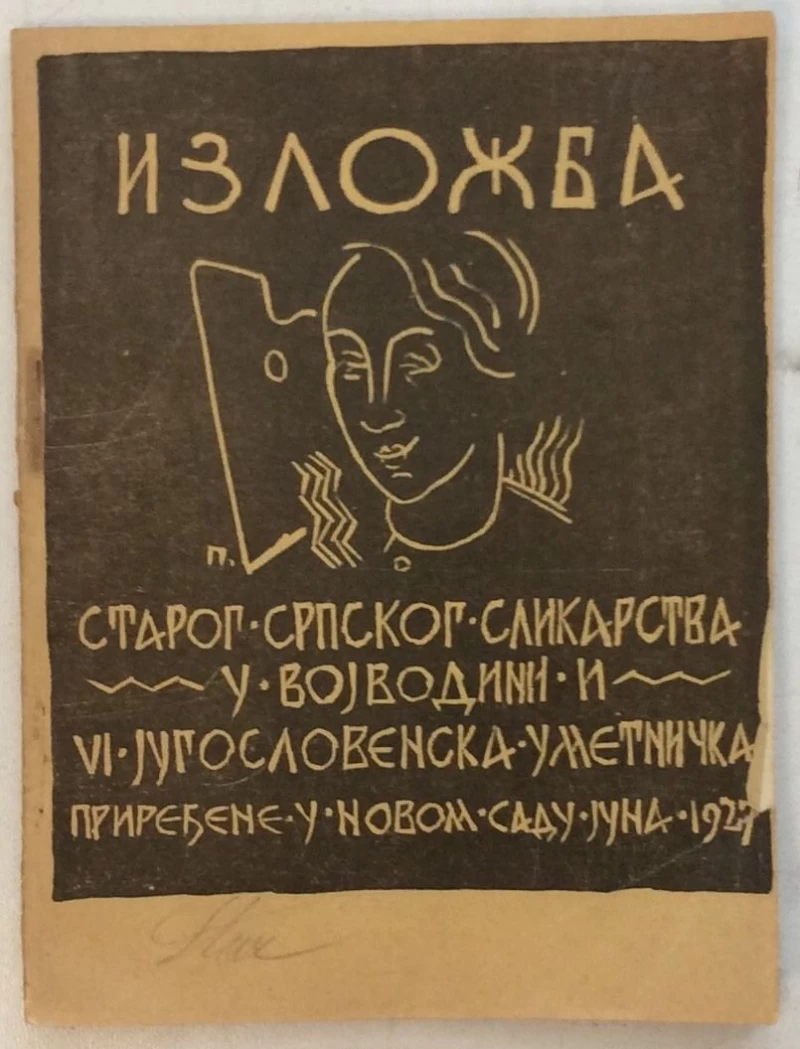 ИЗЛОЖБА
П.
СТАРОГ·СРПСКОГ·СЛИКАРСТВА
У·ВОЈВОДИНИ·И
VI·ЈУГОСЛОВЕНСКА·УМЕТНИЧКА
ПРИРЕЂЕНЕ·У·НОВОМ·САДУ·ЈУНА·1927